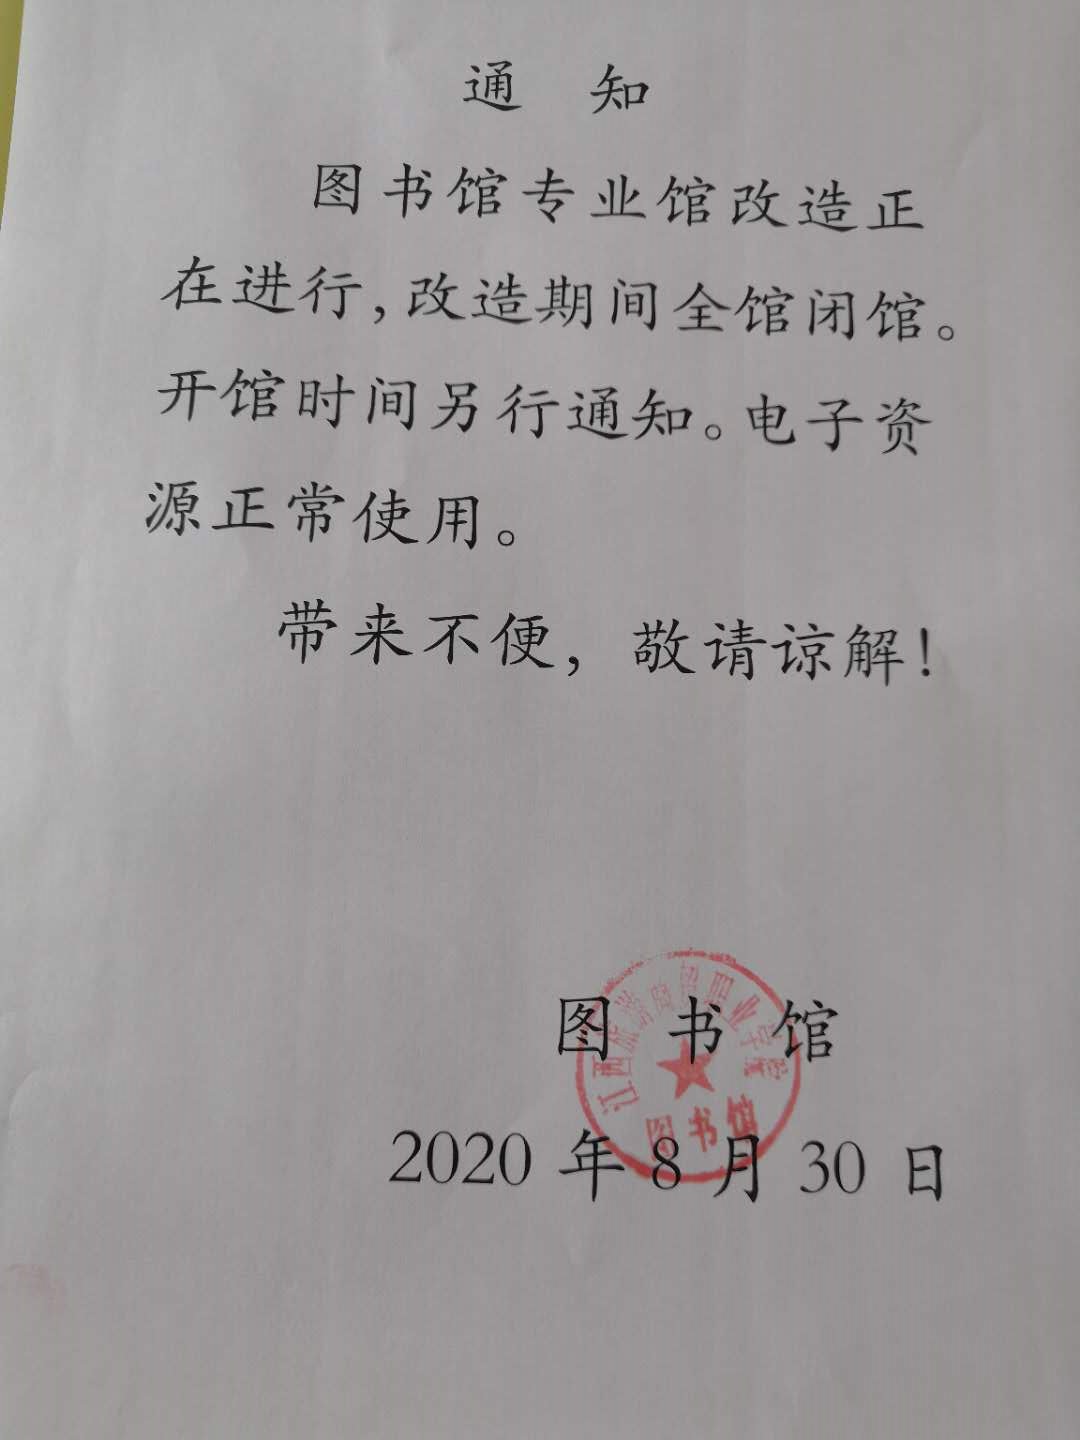 通 知
图书馆专业馆改造正
在进行,改造期间全馆闭馆。
开馆时间另行通知。电子资
源正常使用。
带来不便，敬请谅解！
图 书 馆
2020 年 8 月 30 日
江西旅游商贸职业学院
图书馆